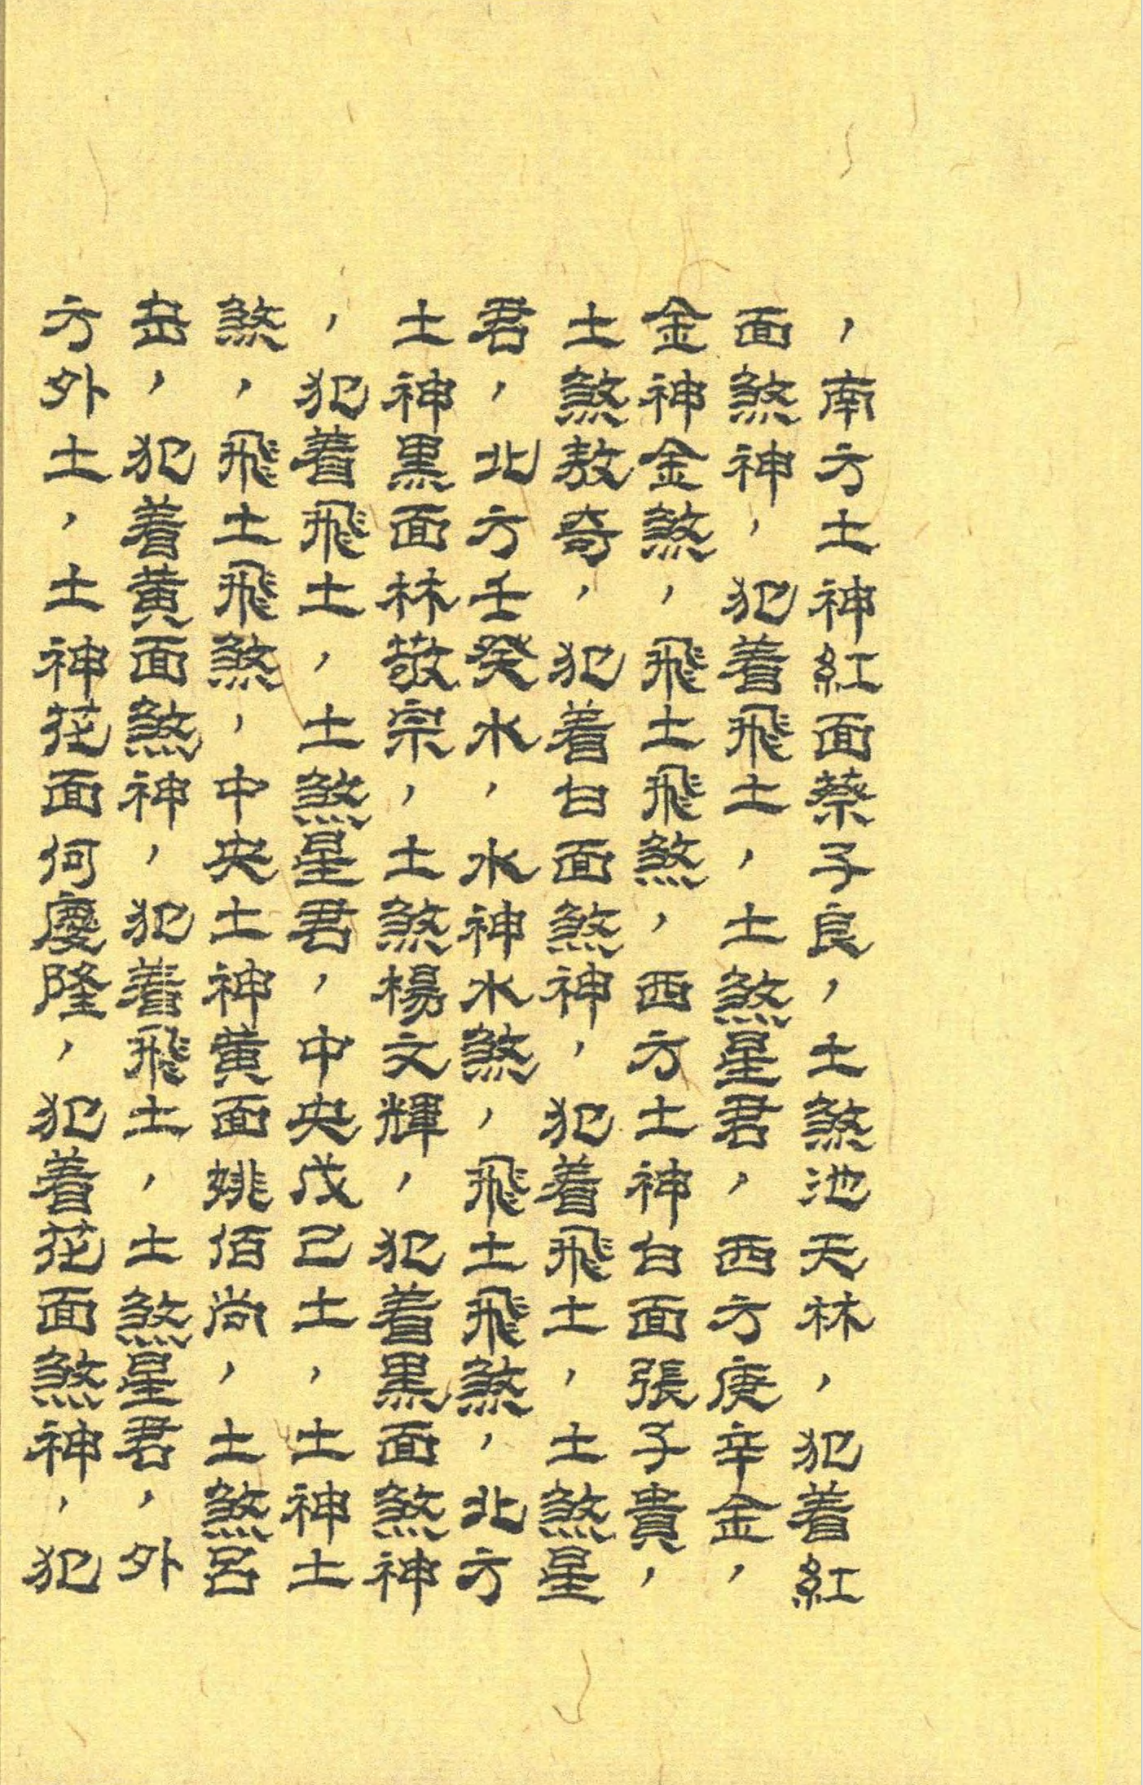 ，南方土神紅面蔡子良，土煞池天林，犯着紅
面煞神，犯着飛土，土煞星君，西方庚辛金，
金神金煞，飛土飛煞，西方土神白面張子貴，
土煞敖奇，犯着白面煞神，犯着飛土，土煞星
君，北方壬癸水，水神水煞，飛土飛煞，北方
土神黑面林敬宗，土煞楊文輝，犯着黑面煞神
，犯着飛土，土煞星君，中央戊己土，土神土
煞，飛土飛煞，中央土神黃面姚佰尚，土煞呂
岳，犯着黃面煞神，犯着飛土，土煞星君，外
方外土，土神花面何慶隆，犯着花面煞神，犯